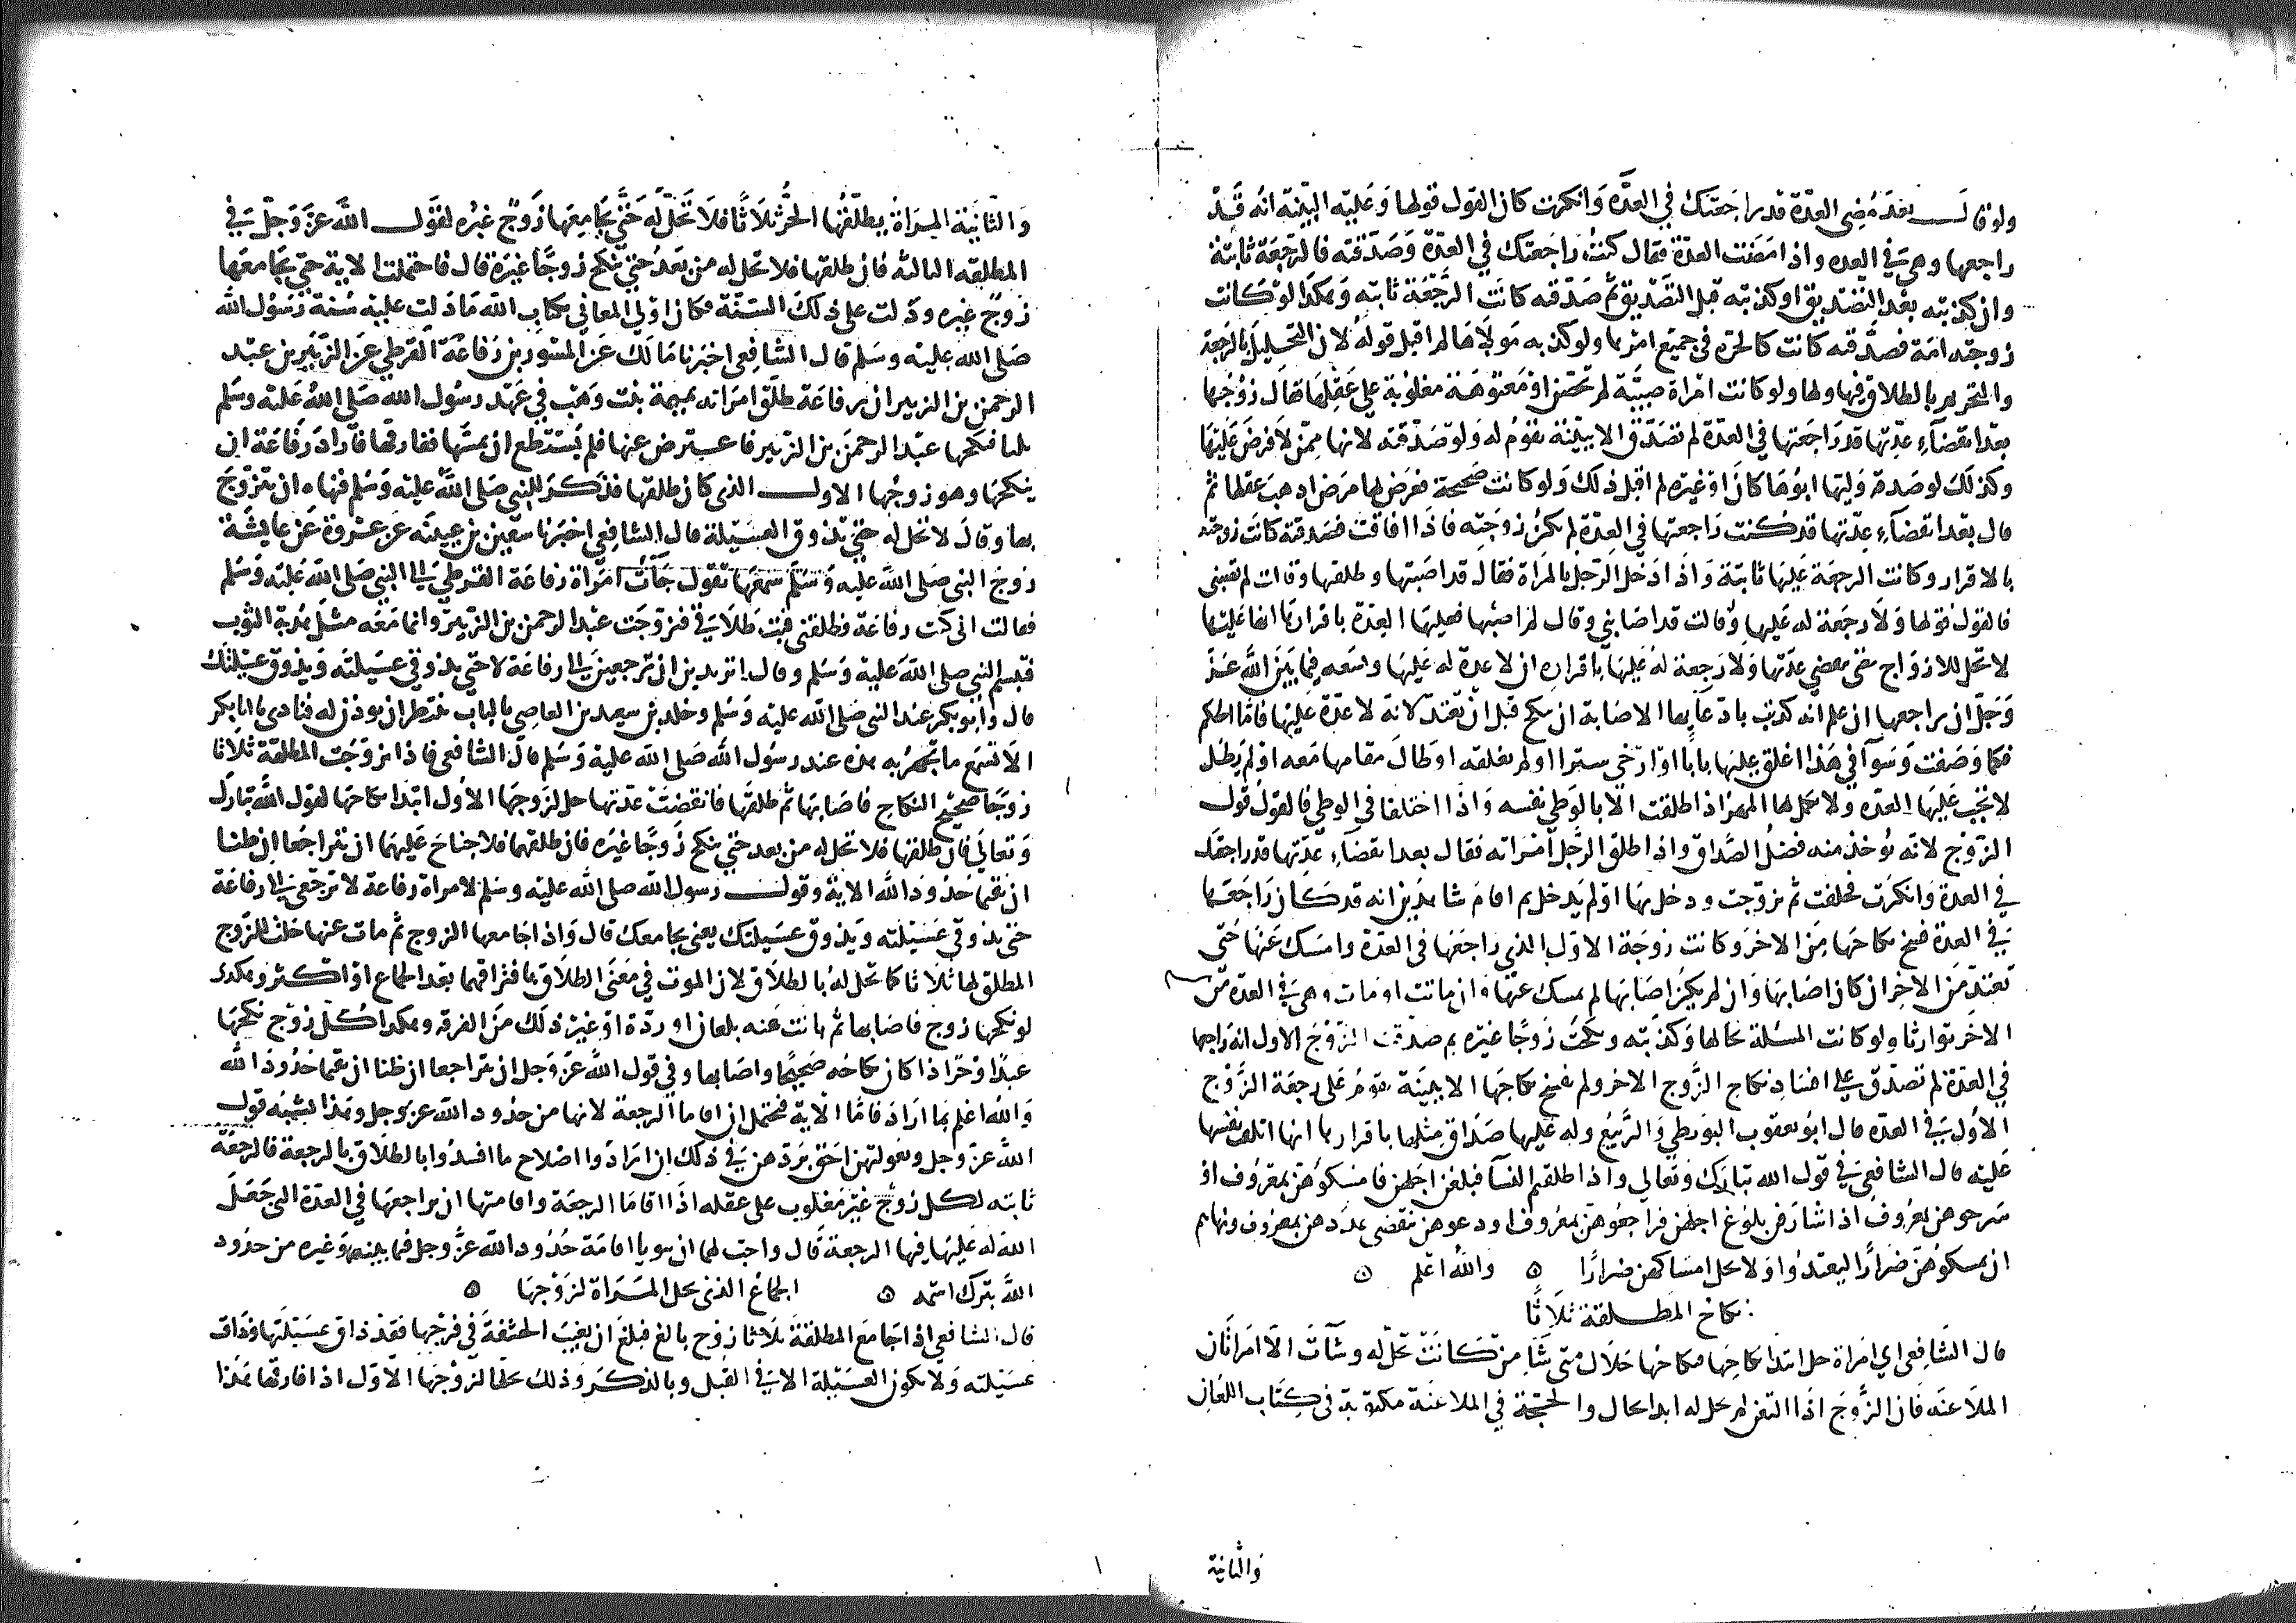 ولو قال بعد مضى العدة قد راجعتك في العدة وانكرت كان القول قولها وعليه البينة انه قد
راجعها وهي في العده واذا مضت العدة فقال كنت راجعتك في العدة وصدقته فالرجعة ثابتة
وان كذبته بعد التصديق او كذبته قبل التصديق ثم صدقته كانت الرجعة ثابته وهكذا لو كانت
زوجته امة فصدقته كانت كالحرة في جميع امرها ولو كذبه مولاها لم اقبل قوله لان التحليل بالرجعة
والتحريم بالطلاق فيها ولها ولو كانت امراة صبية لم تحض او معتوهة مغلوبة على عقلها فقال زوجها
بعد انقضاء عدتها قد راجعتها في العدة لم تصدق الا ببينة تقوم له ولو صدقته لانها ممن لا فرض عليها
وكذلك لو صدقه وليها ابوها كان او غيره لم اقبل ذلك ولو كانت صحيحة فعرض لها مرض اذهب عقلها ثم
قال بعد انقضاء عدتها قد كنت راجعتها في العدة لم تكن زوجته فاذا افاقت فصدقته كانت زوجته
بالاقرار وكانت الرجعة عليها ثابتة واذا ادخل الرجل بالمراة فقال قد اصبتها وطلقها وقالت لم تصبنى
فالقول قولها ولا رجعة له عليها ولو قالت قد اصابني وقال لم اصبها فعليها العدة باقرارها انها عليها
لا تحل للازواج حتى تمضي عدتها ولا رجعة له عليها باقراره ان لا عدة له عليها وسعه فيما بين الله عز
وجل ان يراجعها ان علم انه كذب بادعايها الاصابة ان تنكح قبل ان تعتد لانه لا عدة عليها فاما الحكم
فكما وصفت وسوآ في هذا اغلق عليها بابا او ارخي سترا او لم يغلقه او طال مقامها معه او لم يطل
لا تجب عليها العده ولا يكمل لها المهر اذا طلقت الا بالوطي نفسه واذا اختلفا في الوطي فالقول قول
الزوج لانه يؤخذ منه فضل الصداق واذا طلق الرجل امراته فقال بعد انقضاء عدتها قد راجعتك
في العدة وانكرت فحلفت ثم تزوجت ودخل بها او لم يدخل ثم اقام شاهدين انه قد كان راجعها
في العدة فسخ نكاحها من الاخر وكانت زوجة الاول الذي راجعها في العدة وامسك عنها حتى
تعتد من الاخر ان كان اصابها وان لم يكن اصابها لم يمسك عنها وان ماتت او مات وهي في العدة من
الاخر توارثا ولو كانت المسئلة بحالها وكذبته ونكحت زوجا غيره ثم صدقت الزوج الاول انه راجعها
في العدة لم تصدق على افساد نكاح الزوج الاخر ولم يفسخ نكاحها الا ببينة تقوم على رجعة الزوج
الاول في العدة قال ابو يعقوب البويطي والربيع وله عليها صداق مثلها باقرارها انها اتلفت نفسها
عليه قال الشافعي في قول الله تبارك وتعالى واذا طلقتم النسآ فبلغن اجلهن فامسكوهن بمعروف او
سرحوهن بمعروف اذا شارفن بلوغ اجلهن فراجعوهن بمعروف او دعوهن تنقضى عددهن بمعروف ونهاهم
ان يمسكوهن ضرارا ليعتدوا ولا يحل امساكهن ضرارا ۞ والله اعلم ۞
نكاح المطلقة ثلاثا
قال الشافعي اي امراة حل ابتدا نكاحها فنكاحها حلال متى شا من كانت تحل له وشآت الا امراتان
الملاعنه فان الزوج اذا التعن لم تحل له ابدا بحال والحجة في الملاعنة مكتوبة في كتاب اللعان
والثانية
والثانية المراة يطلقها الحر ثلاثا فلا تحل له حتى يجامعها زوج غيره لقول الله عز وجل في
المطلقه الثالثه فان طلقها فلا تحل له من بعد حتى تنكح زوجا غيره قال فاحتملت الاية حتى يجامعها
زوج غيره ودلت على ذلك السنة فكان اولى المعاني بكتاب الله ما دلت عليه سنة رسول الله
صلى الله عليه وسلم قال الشافعي اخبرنا مالك عن المسور بن رفاعة القرظي عن الزبير بن عبد
الرحمن بن الزبير ان رفاعة طلق امراته تميمة بنت وهب في عهد رسول الله صلى الله عليه وسلم
ثلثا فنكحها عبد الرحمن بن الزبير فاعترض عنها فلم يستطع ان يمسها ففارقها فاراد رفاعة ان
ينكحها وهو زوجها الاول الذي كان طلقها فذكر للنبي صلى الله عليه وسلم فنهاه ان يتزوج
بها وقال لا تحل له حتى تذوق العسيلة قال الشافعي اخبرنا سفين بن عيينه عن عروة عن عايشة
زوج النبي صلى الله عليه وسلم سمعها تقول جآت امراة رفاعة القرظي الى النبي صلى الله عليه وسلم
فقالت اني كنت رفاعة فطلقني فبت طلاقي فتزوجت عبد الرحمن بن الزبير وانما معه مثل هدبة الثوب
فتبسم النبي صلى الله عليه وسلم وقال اتريدين ان ترجعين الى رفاعة لا حتى تذوقي عسيلته ويذوق عسيلتك
قال وابو بكر عند النبي صلى الله عليه وسلم وخلد بن سعيد بن العاصي بالباب ينتظر ان يوذن له فنادى يا ابا بكر
الا تسمع ما تجهر به هذه عند رسول الله صلى الله عليه وسلم قال الشافعي فاذا تزوجت المطلقة ثلاثا
زوجا صحيح النكاح فاصابها ثم طلقها فانقضت عدتها حل لزوجها الاول ابتدا نكاحها لقول الله تبارك
وتعالى فان طلقها فلا تحل له من بعد حتى تنكح زوجا غيره فان طلقهما فلا جناح عليهما ان يتراجعا ان ظنا
ان يقيما حدود الله الاية وقول رسول الله صلى الله عليه وسلم لامراة رفاعة لا ترجعي الى رفاعة
حتى تذوقي عسيلته ويذوق عسيلتك يعنى يجامعك قال واذا جامعها الزوج ثم مات عنها حلت للزوج
المطلق لها ثلاثا كما تحل له بالطلاق لان الموت في معنى الطلاق بافتراقهما بعد الجماع او اكثر وهكذى
لو نكحها زوج فاصابها ثم بانت عنه بلعان او ردة او غير ذلك من الفرقه وهكدا كل زوج نكحها
عبدا او حرا اذا كان نكاحه صحيحا واصابها وفي قول الله عز وجل ان يتراجعا ان ظنا ان يقيما حدود الله
والله اعلم بما اراد فاما الاية فتحتمل ان اقاما الرجعة لانها من حدود الله عز وجل وهذا يشبه قول
الله عز وجل وبعولتهن احق بردهن في ذلك ان ارادوا اصلاح ما افسدوا بالطلاق بالرجعة فالرجعة
ثابته لكل زوج غير مغلوب على عقله اذا اقاما الرجعة واقامتها ان يراجعها في العدة التى جعل
الله له عليها فيها الرجعة قال واحب لهما ان ينويا اقامة حدود الله عز وجل فيما بينهم وغيره من حدود
الله تبرك اسمه ۞ الجماع الذى تحل المراة لزوجها ۞
قال الشافعي اذا جامع المطلقة ثلاثا زوج بالغ فبلغ ان يغيب الحشفة في فرجها فقد ذاق عسيلتها وذاقت
عسيلته ولا تكون العسيلة الا في القبل وبالذكر وذلك يحلها لزوجها الاول اذا فارقها هذا